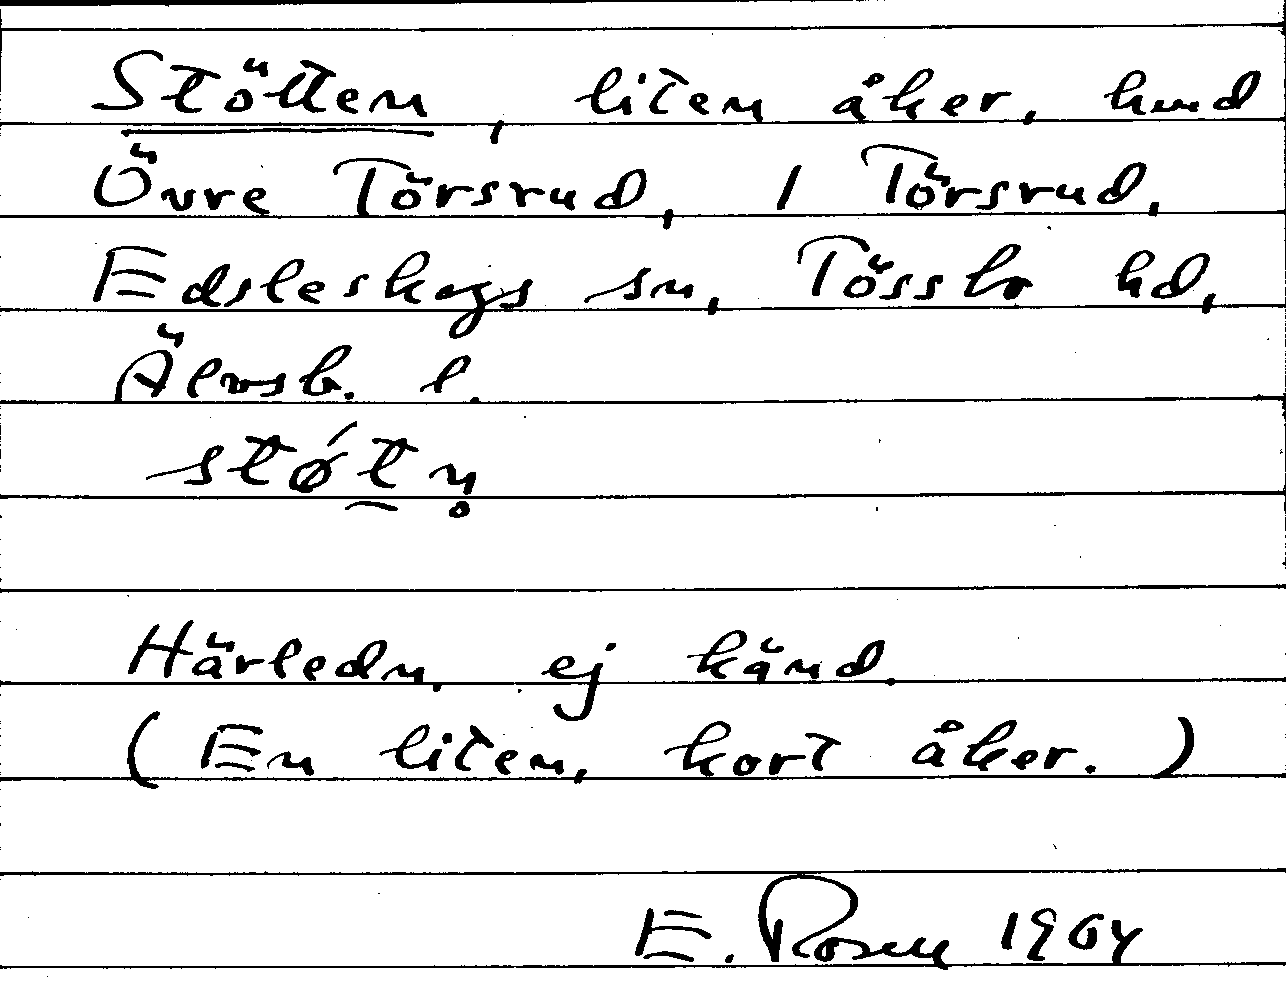 Stötten, liten åker, hmd
Övre Törsrud, 1 Törsrud,
Edsleskogs sn, Tössbo hd,
Älvsb. l.
stǿt̯n̥
Härledn. ej känd.
(En liten, kort åker.)
E. Rosen 1964